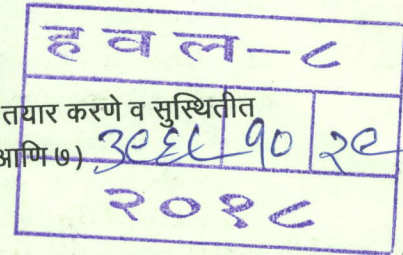 हवल-८
तयार करणे व सुस्थितीत
आणि ७) ३९६८ १० २९
२०१८